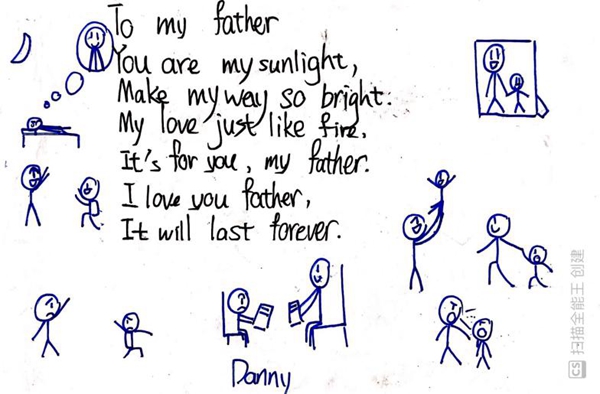 To my father
You are my sunlight,
Make my way so bright.
My love just like fire.
It's for you, my father.
I love you father,
It will last forever.
Danny
CS 扫描全能王 创建